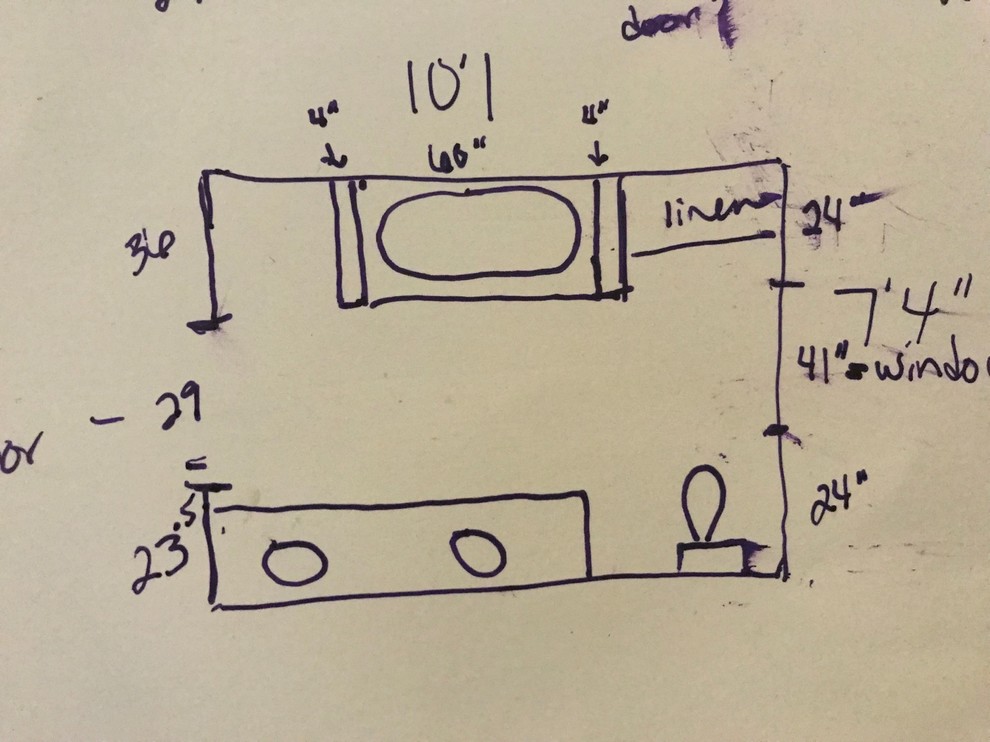 door
10'1
4"
4"
60"
linen
24"
36
7'4"
41" = windo
or - 29
=
24"
23.5